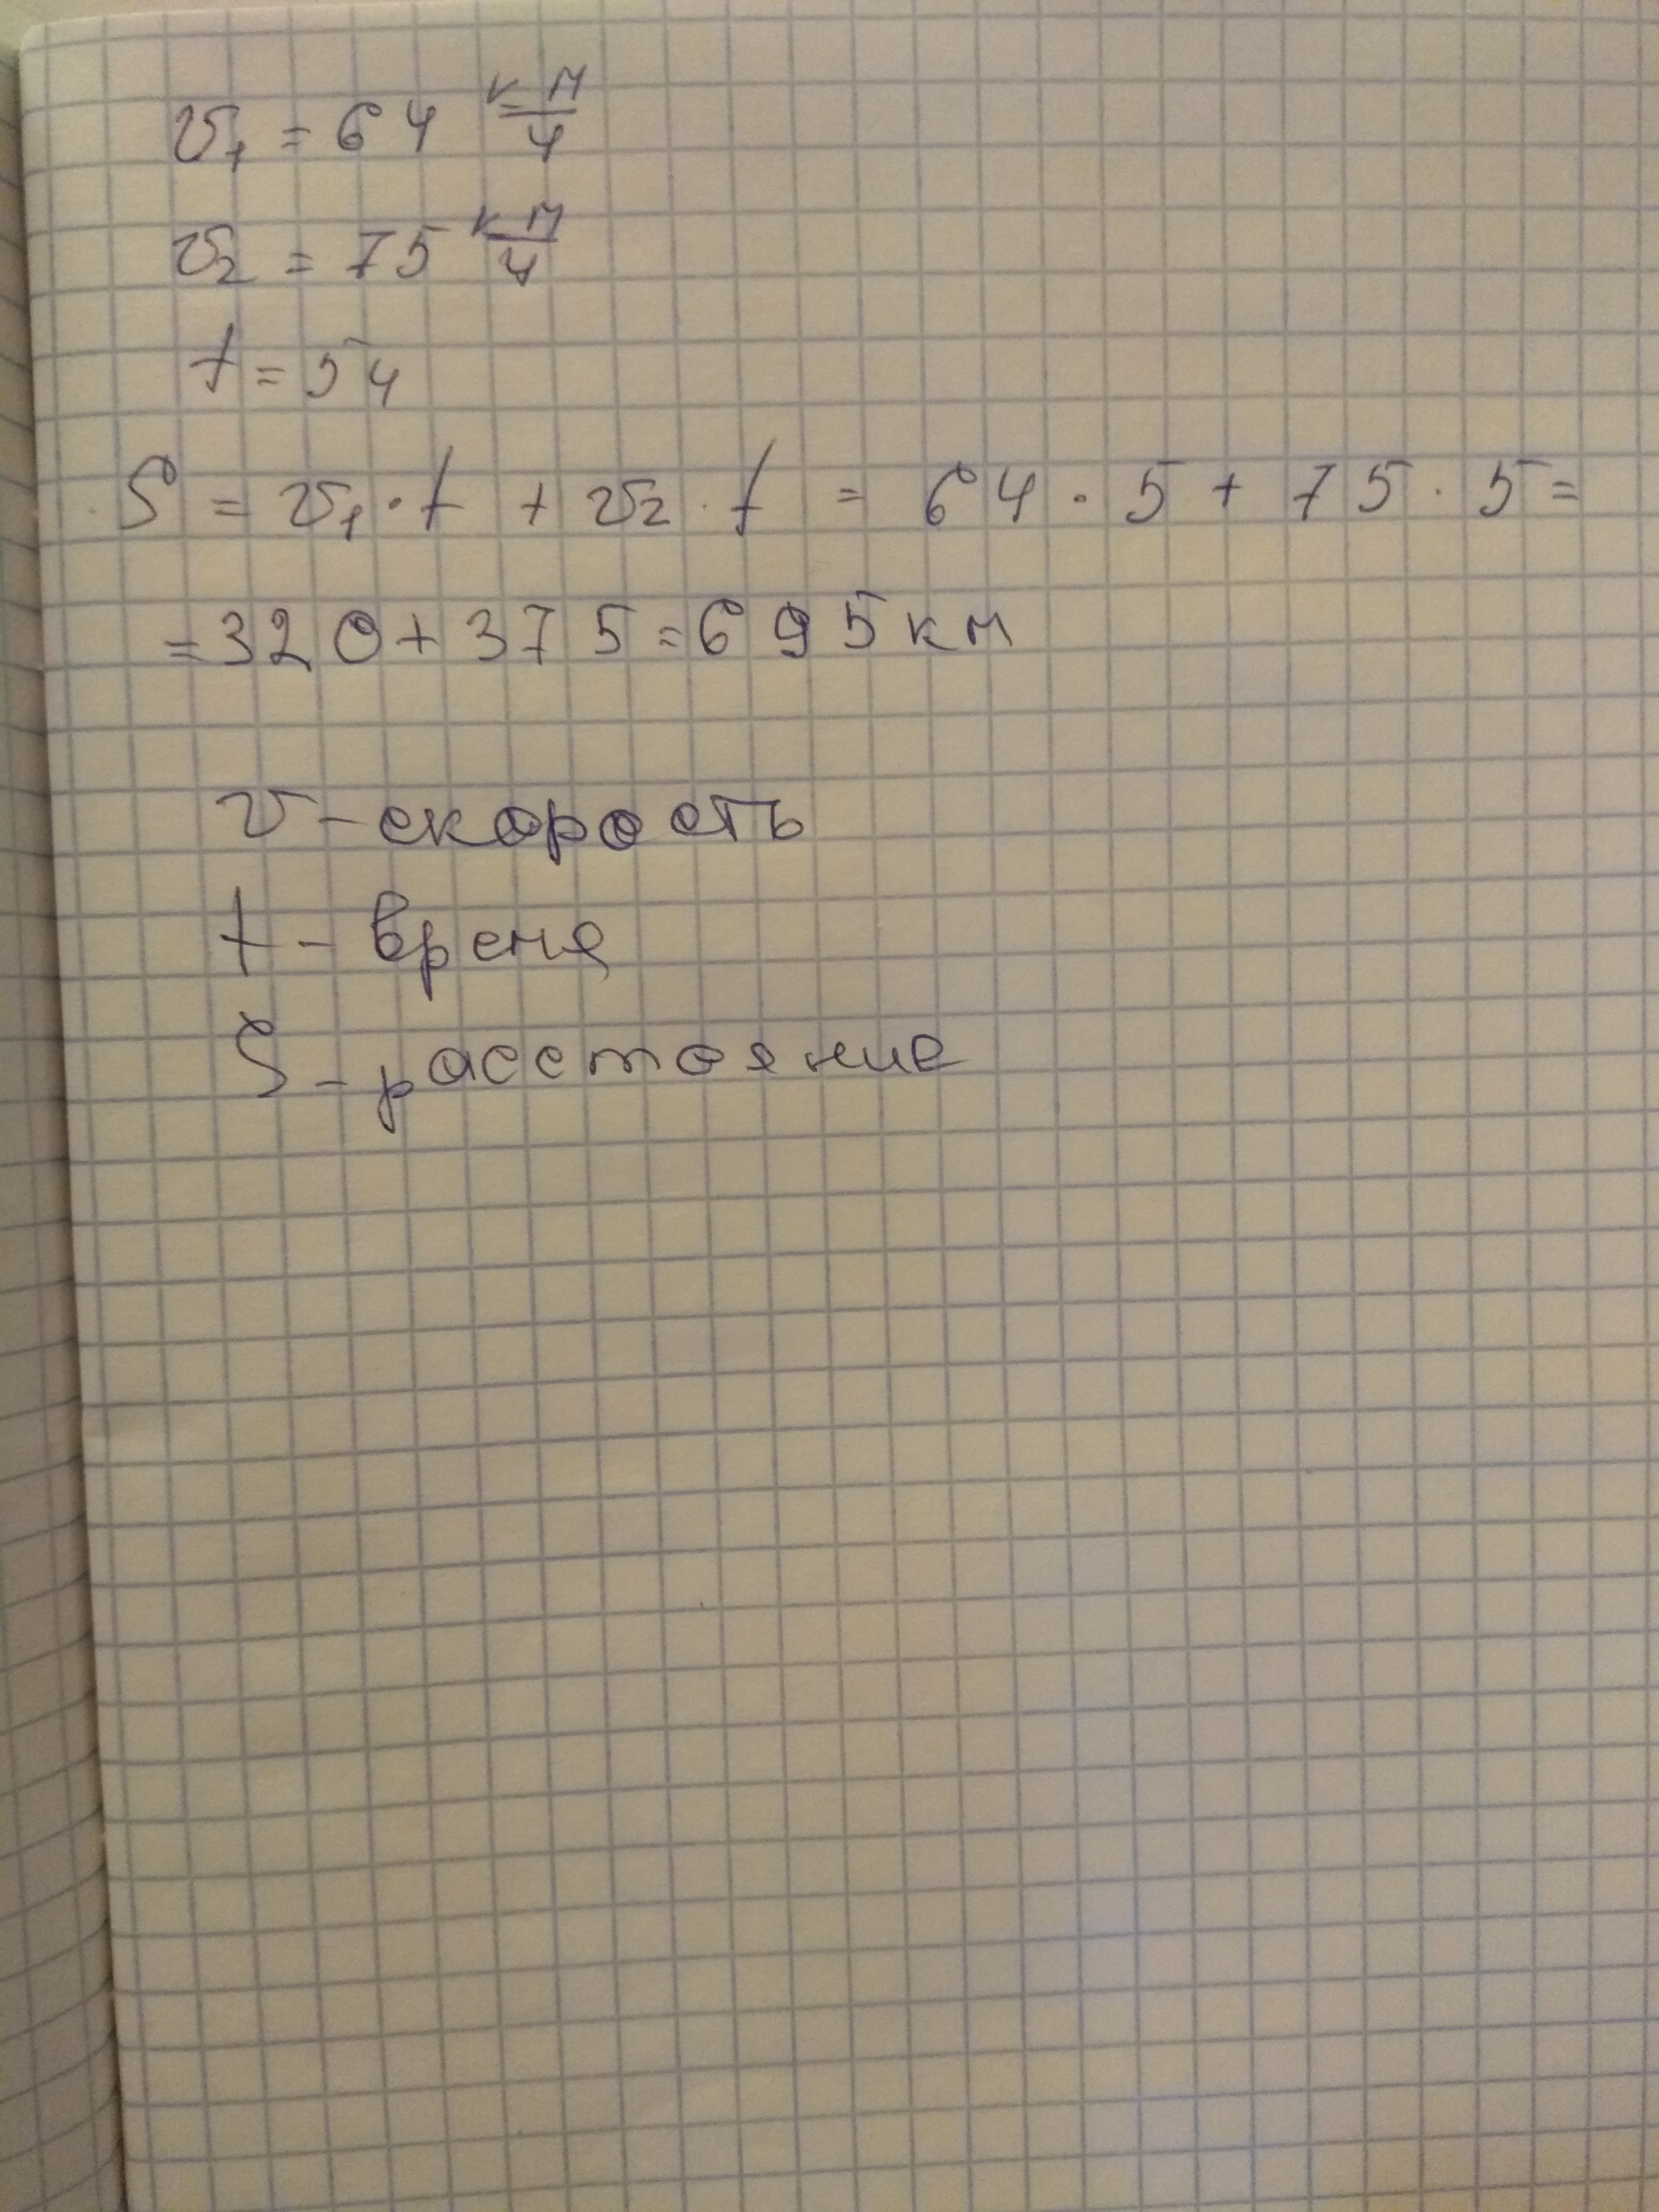 v₁ = 64 км/ч
v₂ = 75 км/ч
t = 5ч
S = v₁ · t + v₂ · t = 64 · 5 + 75 · 5 =
= 320 + 375 = 695 км
v - скорость
t - время
S - расстояние